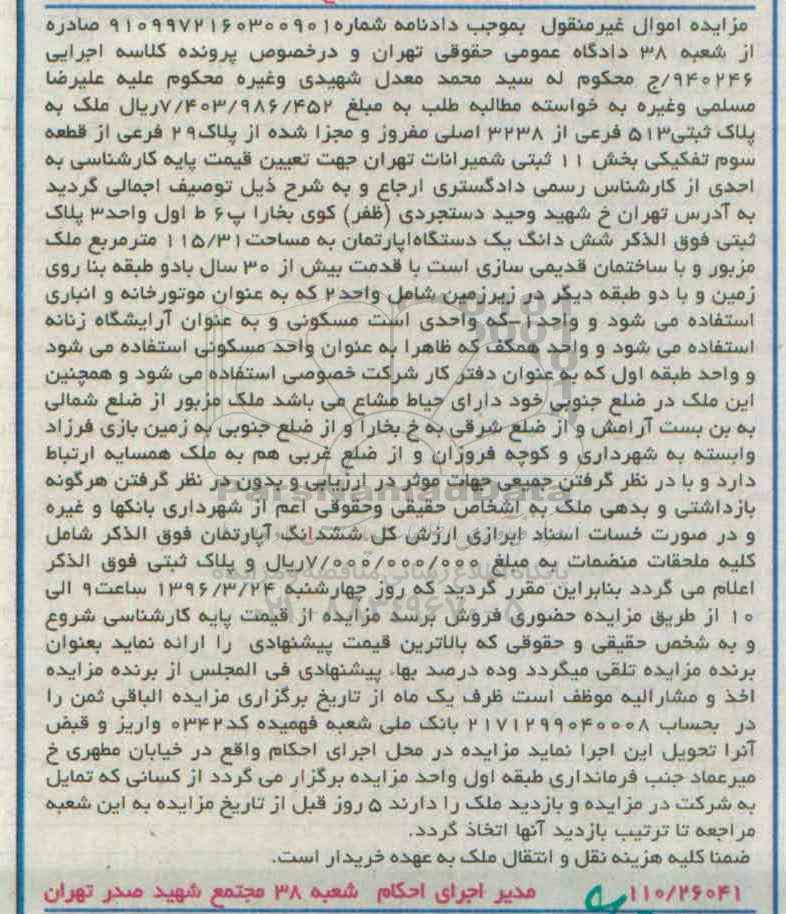 مزایده اموال غیرمنقول بموجب دادنامه شماره ۹۱۰۹۹۷۲۱۶۰۳۰۰۹۰۱ صادره
از شعبه ۳۸ دادگاه عمومی حقوقی تهران و درخصوص پرونده کلاسه اجرایی
۹۴۰۲۴۶/ج محکوم له سید محمد معدل شهیدی وغیره محکوم علیه علیرضا
مسلمی وغیره به خواسته مطالبه طلب به مبلغ ۷/۴۰۳/۹۸۶/۴۵۲ریال ملک به
پلاک ثبتی۵۱۳ فرعی از ۳۲۳۸ اصلی مفروز و مجزا شده از پلاک۲۹ فرعی از قطعه
سوم تفکیکی بخش ۱۱ ثبتی شمیرانات تهران جهت تعیین قیمت پایه کارشناسی به
احدی از کارشناس رسمی دادگستری ارجاع و به شرح ذیل توصیف اجمالی گردید
به آدرس تهران خ شهید وحید دستجردی (ظفر) کوی بخارا پ۶ ط اول واحد۳ پلاک
ثبتی فوق الذکر شش دانگ یک دستگاه‌آپارتمان به مساحت۱۱۵/۳۱ مترمربع ملک
مزبور و با ساختمان قدیمی سازی است با قدمت بیش از ۳۰ سال بادو طبقه بنا روی
زمین و با دو طبقه دیگر در زیرزمین شامل واحد۲ که به عنوان موتورخانه و انباری
استفاده می شود و واحد۱ که واحدی است مسکونی و به عنوان آرایشگاه زنانه
استفاده می شود و واحد همکف که ظاهرا به عنوان واحد مسکونی استفاده می شود
و واحد طبقه اول که به عنوان دفتر کار شرکت خصوصی استفاده می شود و همچنین
این ملک در ضلع جنوبی خود دارای حیاط مشاع می باشد ملک مزبور از ضلع شمالی
به بن بست آرامش و از ضلع شرقی به خ بخارا و از ضلع جنوبی به زمین بازی فرزاد
وابسته به شهرداری و کوچه فروزان و از ضلع غربی هم به ملک همسایه ارتباط
دارد و با در نظر گرفتن جمیعی جهات موثر در ارزیابی و بدون در نظر گرفتن هرگونه
بازداشتی و بدهی ملک به اشخاص حقیقی وحقوقی اعم از شهرداری بانکها و غیره
و در صورت خسات اسناد ابرازی ارزش کل ششدانگ آپارتمان فوق الذکر شامل
کلیه ملحقات منضمات به مبلغ ۷/۰۰۰/۰۰۰/۰۰۰ریال و پلاک ثبتی فوق الذکر
اعلام می گردد بنابراین مقرر گردید که روز چهارشنبه ۱۳۹۶/۳/۲۴ ساعت۹ الی
۱۰ از طریق مزایده حضوری فروش برسد مزایده از قیمت پایه کارشناسی شروع
و به شخص حقیقی و حقوقی که بالاترین قیمت پیشنهادی را ارائه نماید بعنوان
برنده مزایده تلقی میگردد وده درصد بهاء پیشنهادی فی المجلس از برنده مزایده
اخذ و مشارالیه موظف است ظرف یک ماه از تاریخ برگزاری مزایده الباقی ثمن را
در بحساب ۲۱۷۱۲۹۹۰۴۰۰۰۸ بانک ملی شعبه فهمیده کد۰۳۴۲ واریز و قبض
آنرا تحویل این اجرا نماید مزایده در محل اجرای احکام واقع در خیابان مطهری خ
میرعماد جنب فرمانداری طبقه اول واحد مزایده برگزار می گردد از کسانی که تمایل
به شرکت در مزایده و بازدید ملک را دارند ۵ روز قبل از تاریخ مزایده به این شعبه
مراجعه تا ترتیب بازدید آنها اتخاذ گردد.
ضمنا کلیه هزینه نقل و انتقال ملک به عهده خریدار است.
۱۱۰/۲۶۰۴۱ مدیر اجرای احکام شعبه ۳۸ مجتمع شهید صدر تهران
ParsNamadData